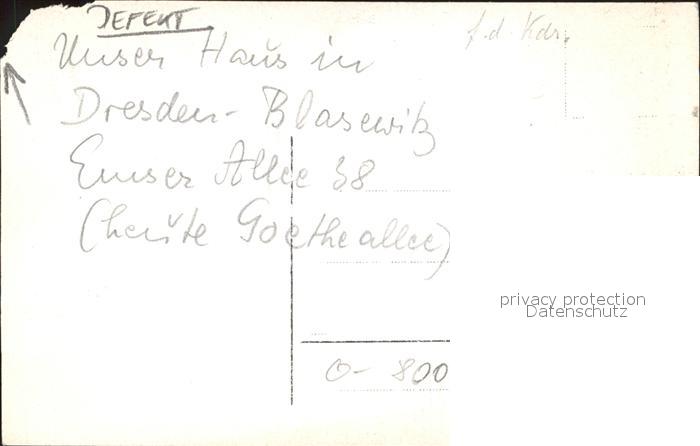 DEFEKT
f.d. Kdr.
Unser Haus in
Dresden-Blasewitz
Emser Allee 38
(heute Goetheallee)
privacy protection
Datenschutz
O-800